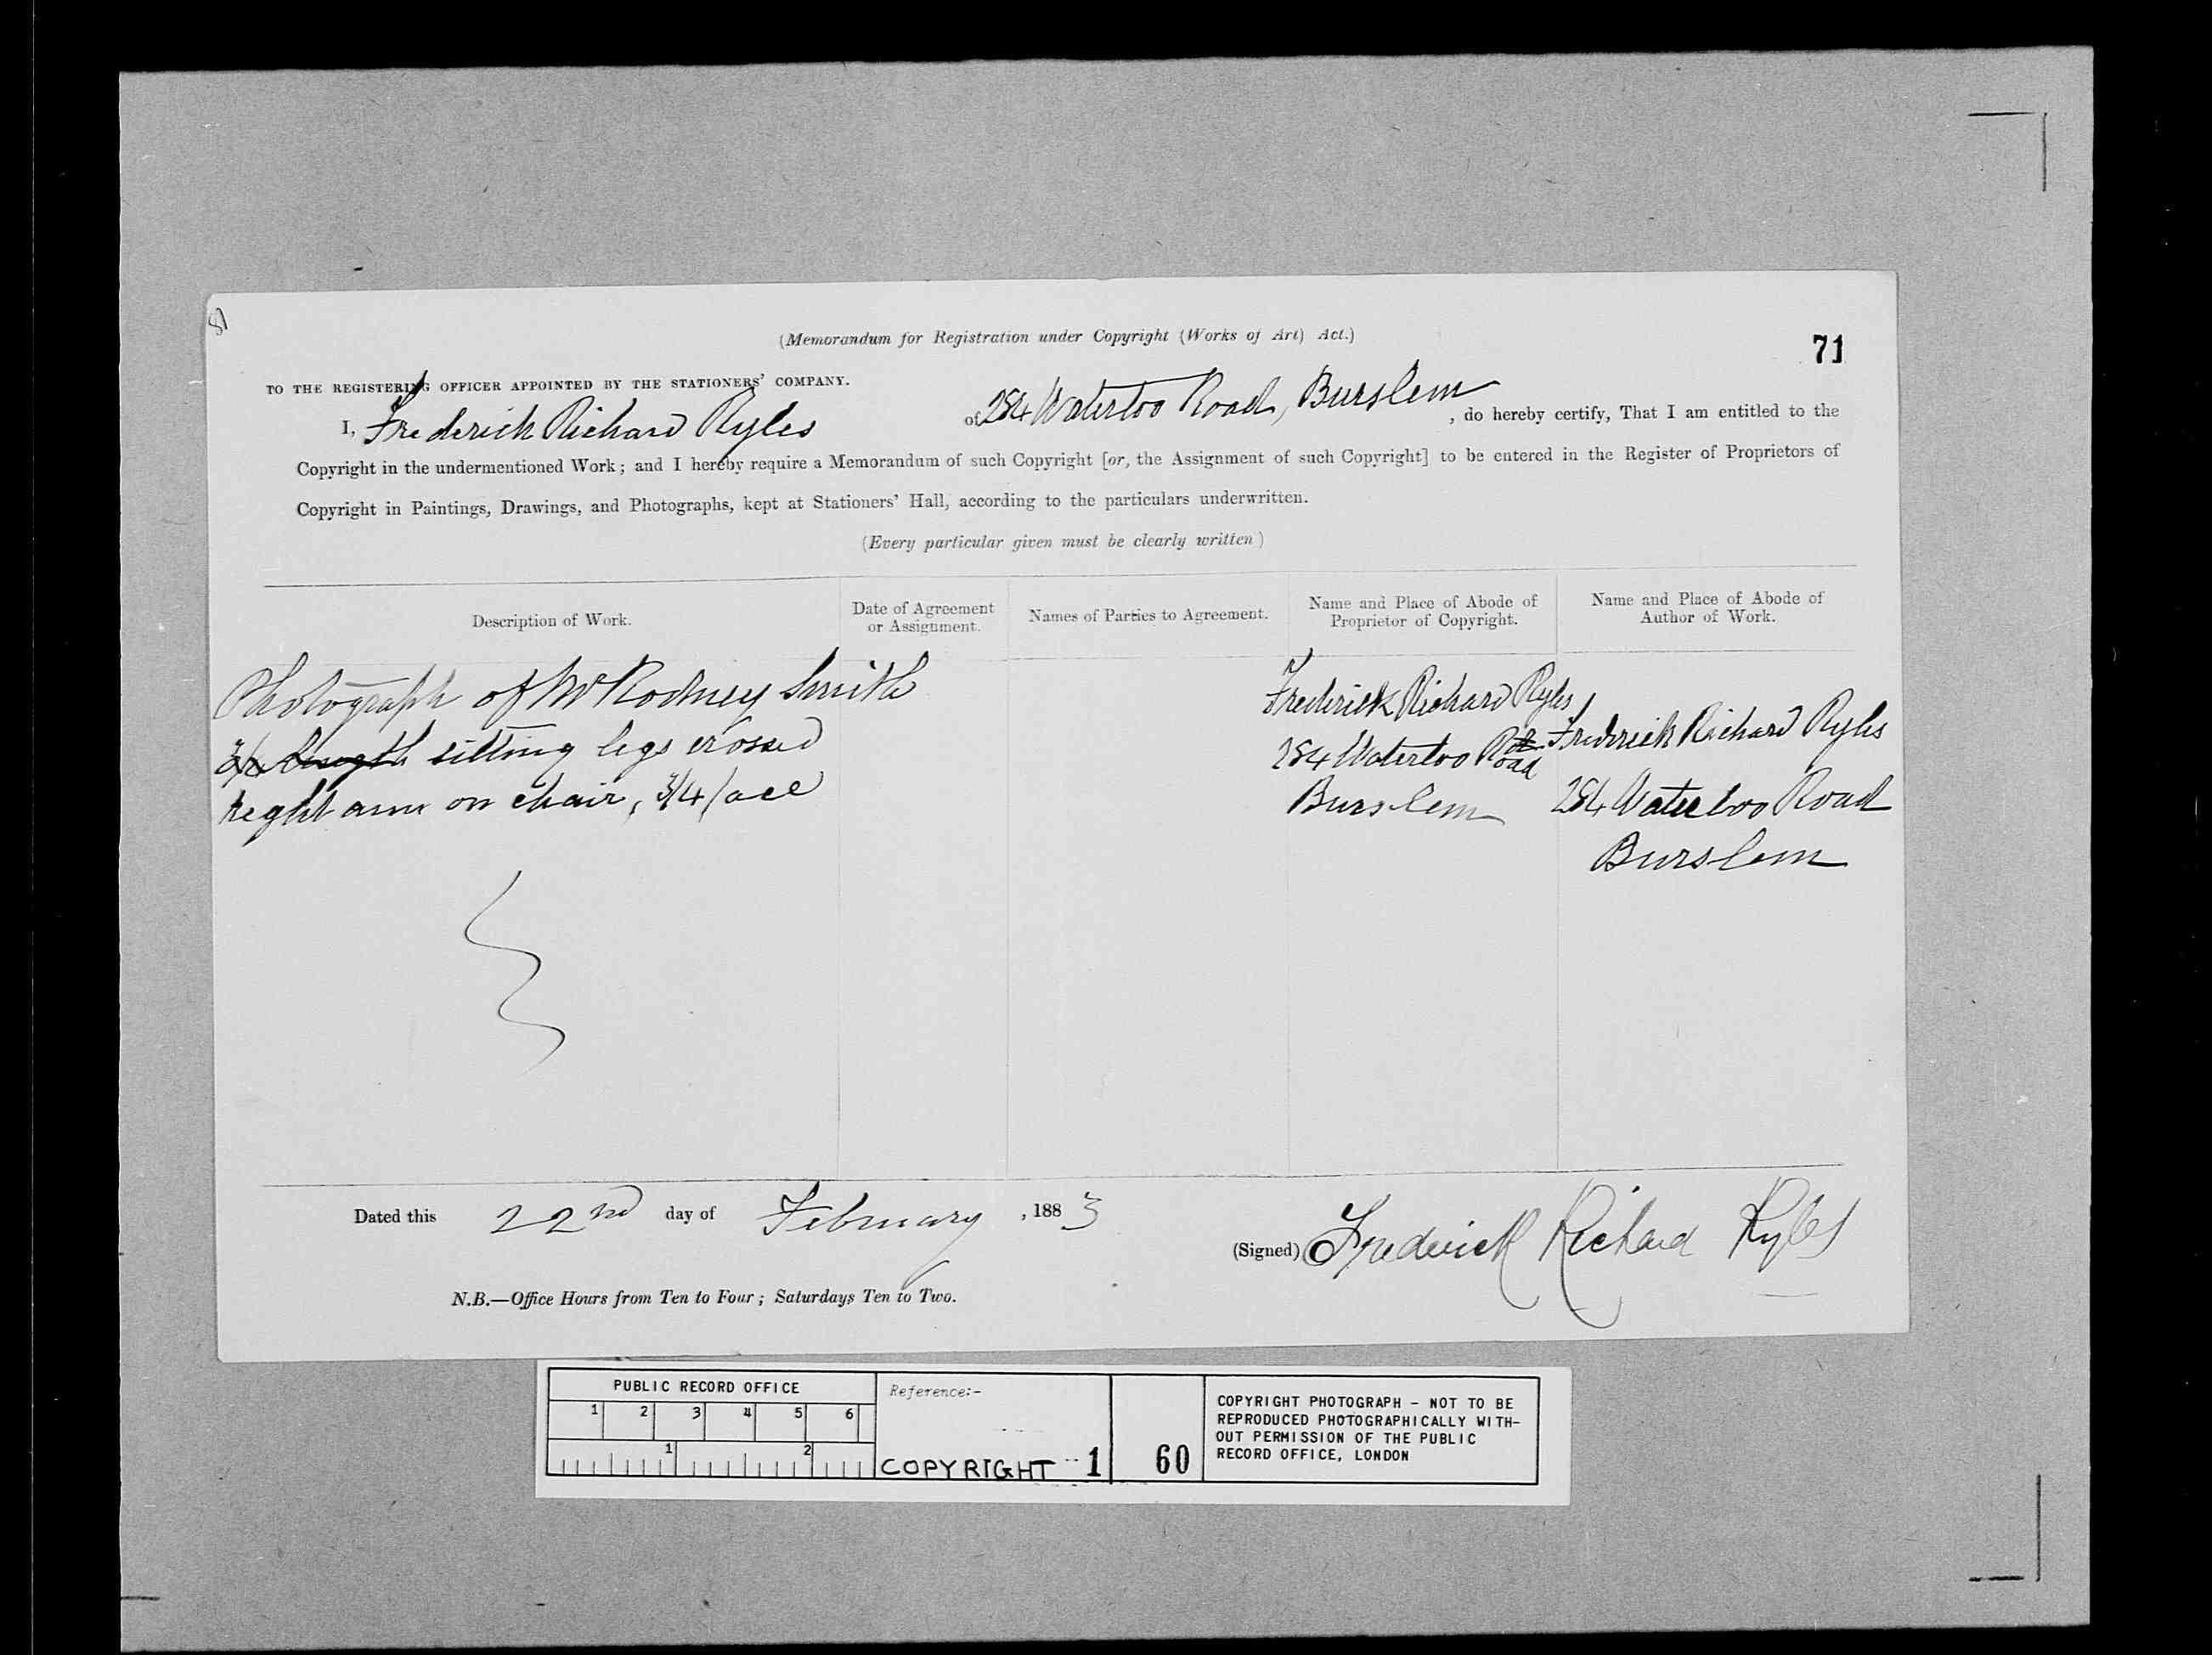 (Memorandum for Registration under Copyright (Works of Art) Act.)
71
TO THE REGISTERING OFFICER APPOINTED BY THE STATIONERS' COMPANY.
I, Frederick Richard Ryles of 254 Waterloo Road, Burslem, do hereby certify, That I am entitled to the
Copyright in the undermentioned Work; and I hereby require a Memorandum of such Copyright [or, the Assignment of such Copyright] to be entered in the Register of Proprietors of
Copyright in Paintings, Drawings, and Photographs, kept at Stationers' Hall, according to the particulars underwritten.
(Every particular given must be clearly written)
Description of Work.
Date of Agreement
or Assignment.
Names of Parties to Agreement.
Name and Place of Abode of
Proprietor of Copyright.
Name and Place of Abode of
Author of Work.
Photograph of Mr Rodney Smith
length sitting legs crossed
right arm on chair, 3/4 face
Frederick Richard Ryles
254 Waterloo Road
Burslem
Frederick Richard Ryles
254 Waterloo Road
Burslem
Dated this 22nd day of February, 1883
(Signed) Frederick Richard Ryles
N.B.—Office Hours from Ten to Four; Saturdays Ten to Two.
PUBLIC RECORD OFFICE
1 2 3 4 5 6
1 2
Reference:-
COPYRIGHT 1
60
COPYRIGHT PHOTOGRAPH - NOT TO BE
REPRODUCED PHOTOGRAPHICALLY WITH-
OUT PERMISSION OF THE PUBLIC
RECORD OFFICE, LONDON